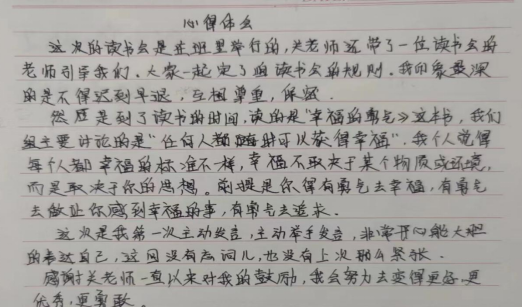 心得什么
这次的读书会是在班里举行的,关老师还带了一位读书会的
老师引导我们。大家一起定了的读书会的规则。我印象最深
的是不得迟到早退,互相尊重,保密。
然后是到了读书的时间,读的是"幸福的勇气》这本书,我们
组主要讨论的是"任何人都随时可以获得幸福"。我个人觉得
每个人都幸福的标准不一样,幸福不取决于某个物质或环境,
而是取决于你的思想。前提是你得有勇气去幸福,有勇气
去做让你感到幸福的事,有勇气去追求。
这次是我第一次主动发言,主动举手发言,非常开心能大胆
的表达自己,这回没有忘词儿,也没有上次那么紧张。
感谢关老师一直以来对我的鼓励,我会努力去变得更好更
优秀,更勇敢。